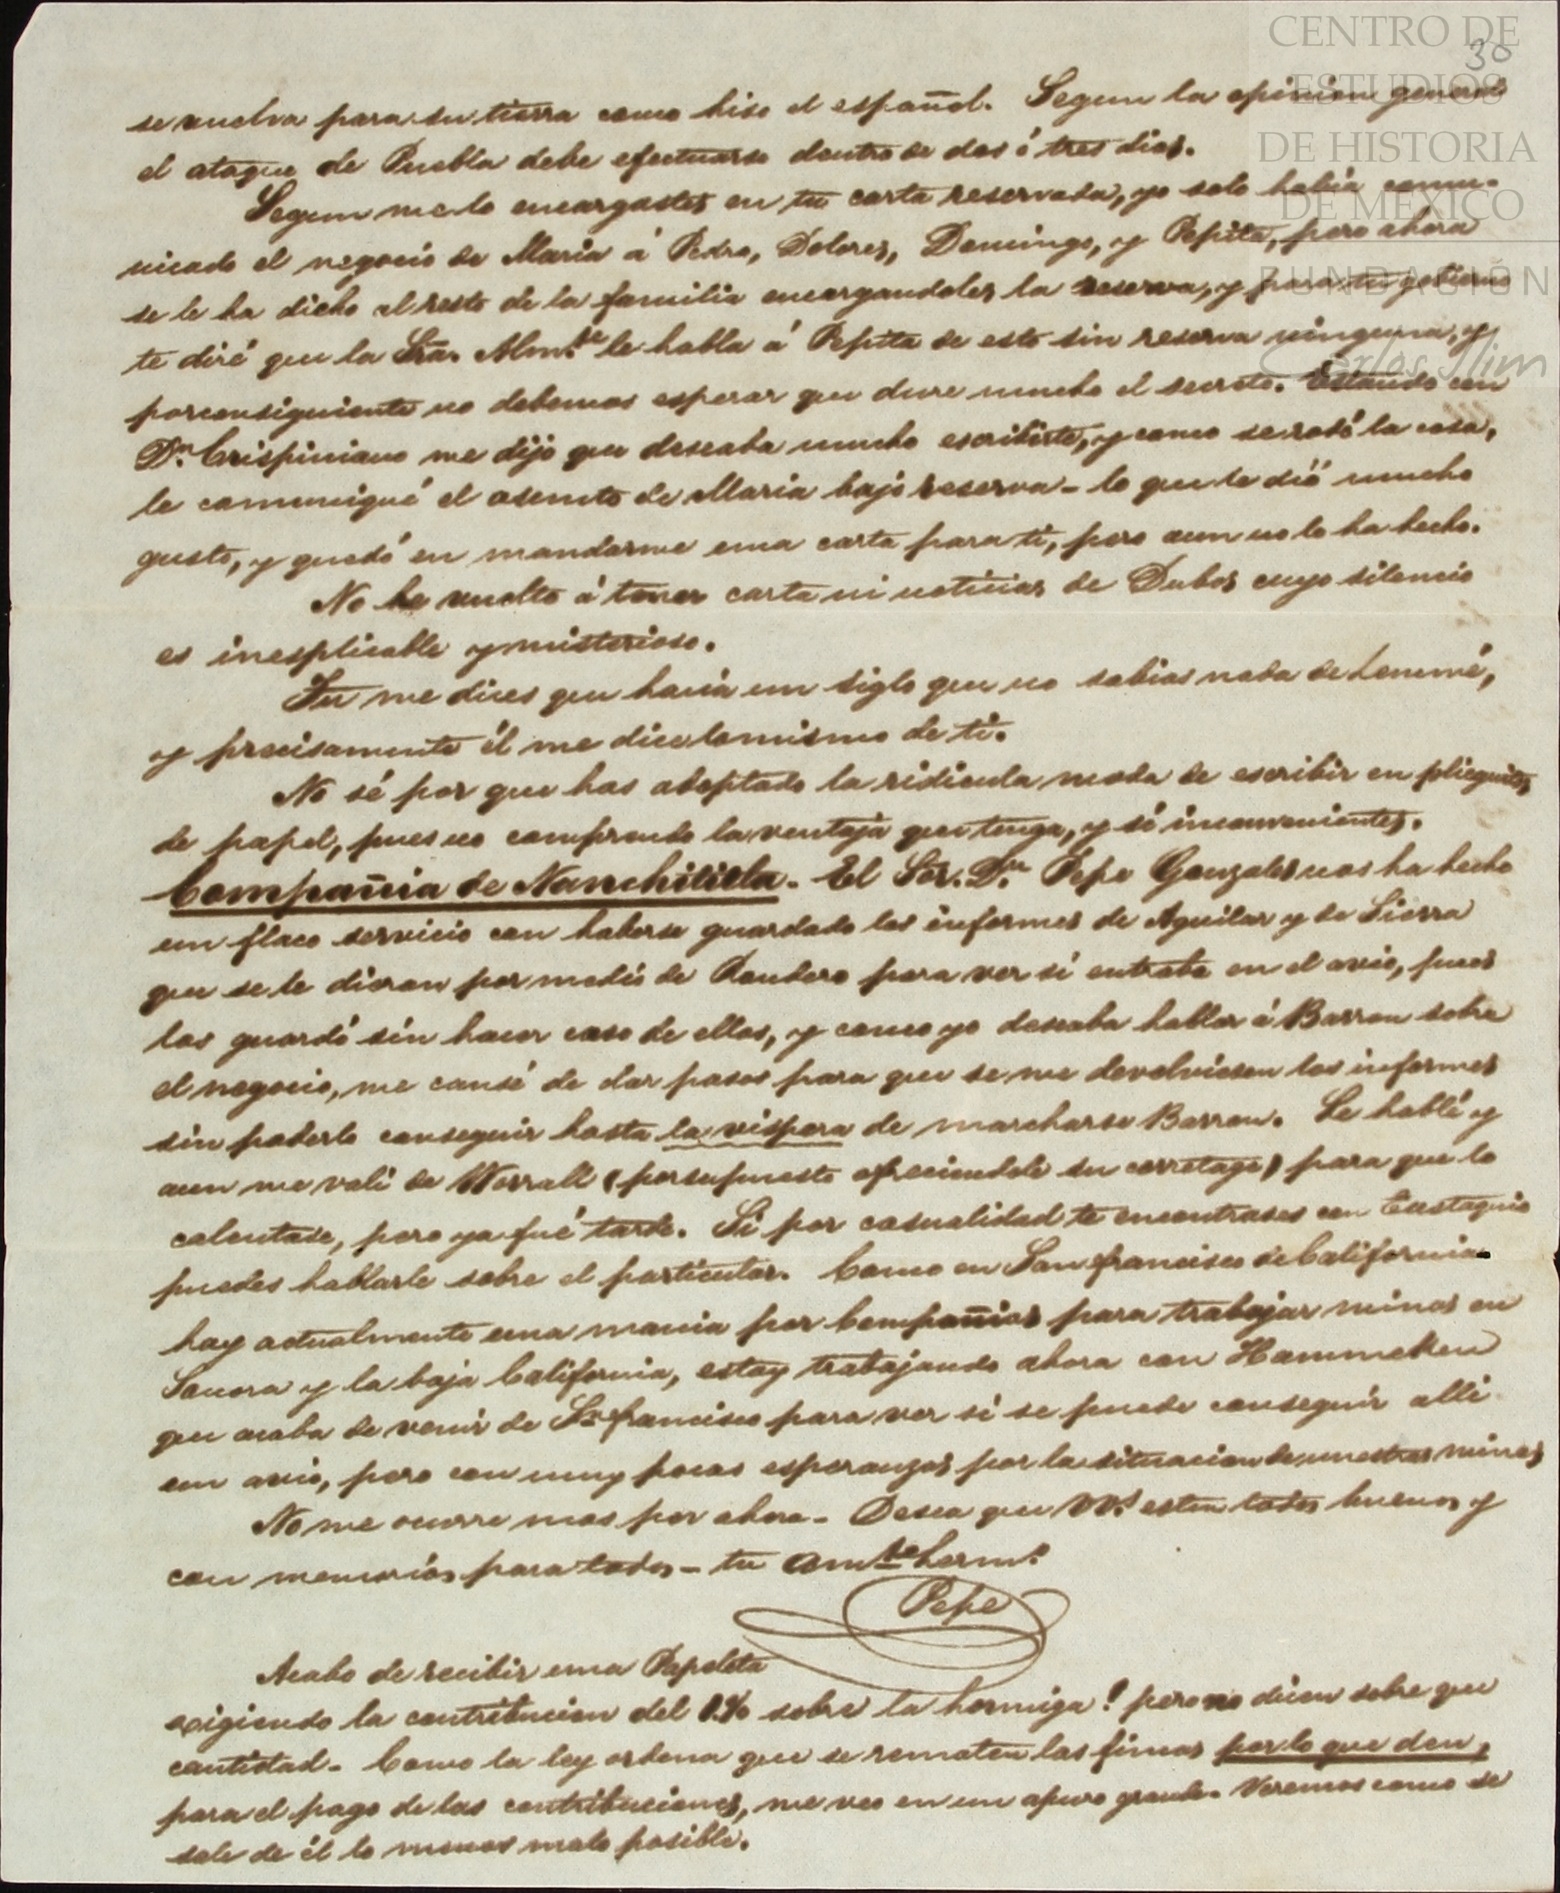 CENTRO DE
ESTUDIOS
DE HISTORIA
DE MEXICO
FUNDACIÓN
Carlos Slim
30
se vuelva para su tierra como hiso el español. Segun la opinion general
el ataque de Puebla debe efectuarse dentro de dos ó tres dias.
Segun me lo encargastes en tu carta reservada, yo solo había comu-
nicado el negocio de Maria á Pedro, Dolores, Domingo, y Pepita, pero ahora
se le ha dicho al resto de la familia encargandoles la reserva, y para tu gobierno
te diré que la Sra. Alm.te le habla á Pepita de esto sin reserva ninguna, y
porconsiguiente no debemos esperar que dure mucho el secreto. Estando con
Dn. Crispiniano me dijo que deseaba mucho escribirte, y como se rosó la cosa,
le comuniqué el asunto de Maria bajo reserva - lo que le dió mucho
gusto, y quedó en mandarme una carta para ti, pero aun no lo ha hecho.
No he vuelto á tener carta ni noticias de Dubos cuyo silencio
es inesplicable y misterioso.
Tu me dices que hacía un siglo que no sabias nada de Lemmé,
y precisamente él me dice lo mismo de ti.
No sé por que has adoptado la ridicula moda de escribir en plieguitos
de papel, pues no comprendo la ventaja que tenga, y sí inconvenientes.
Compañia de Nanchititla. El Sor. Dn. Pepe Gonzales nos ha hecho
un flaco servicio con haberse guardado los informes de Aguilar y de Sierra
que se le dieron por medio de Pandero para ver si entraba en el avio, pues
los guardó sin hacer caso de ellos, y como yo deseaba hablar á Barron sobre
el negocio, me cansé de dar pasos para que se me devolviesen los informes
sin poderlo conseguir hasta la vispera de marcharse Barron. Le hablé y
aun me valí de Worrall (por supuesto ofreciendole su corretage) para que lo
calentase, pero ya fué tarde. Si por casualidad te encontrases con Eustaquio
puedes hablarle sobre el particular. Como en San francisco de California
hay actualmente una mania por Compañias para trabajar minas en
Sonora y la baja California, estoy trabajando ahora con Hammeken
que acaba de venir de Sn francisco para ver si se puede conseguir allí
un avio, pero con muy pocas esperanzas por la situacion de nuestras minas
No me ocurre mas por ahora - Desea que VV.s esten todos buenos y
con memorias para todos - tu am.te herm.o
Pepe
Acabo de recibir una Papeleta
exigiendo la contribucion del 1.% sobre la hormiga! pero no dicen sobre que
cantidad - Como la ley ordena que se rematen las fincas por lo que den,
para el pago de las contribuciones, me veo en un apuro grande. Veremos como se
sale de él lo menos malo posible.